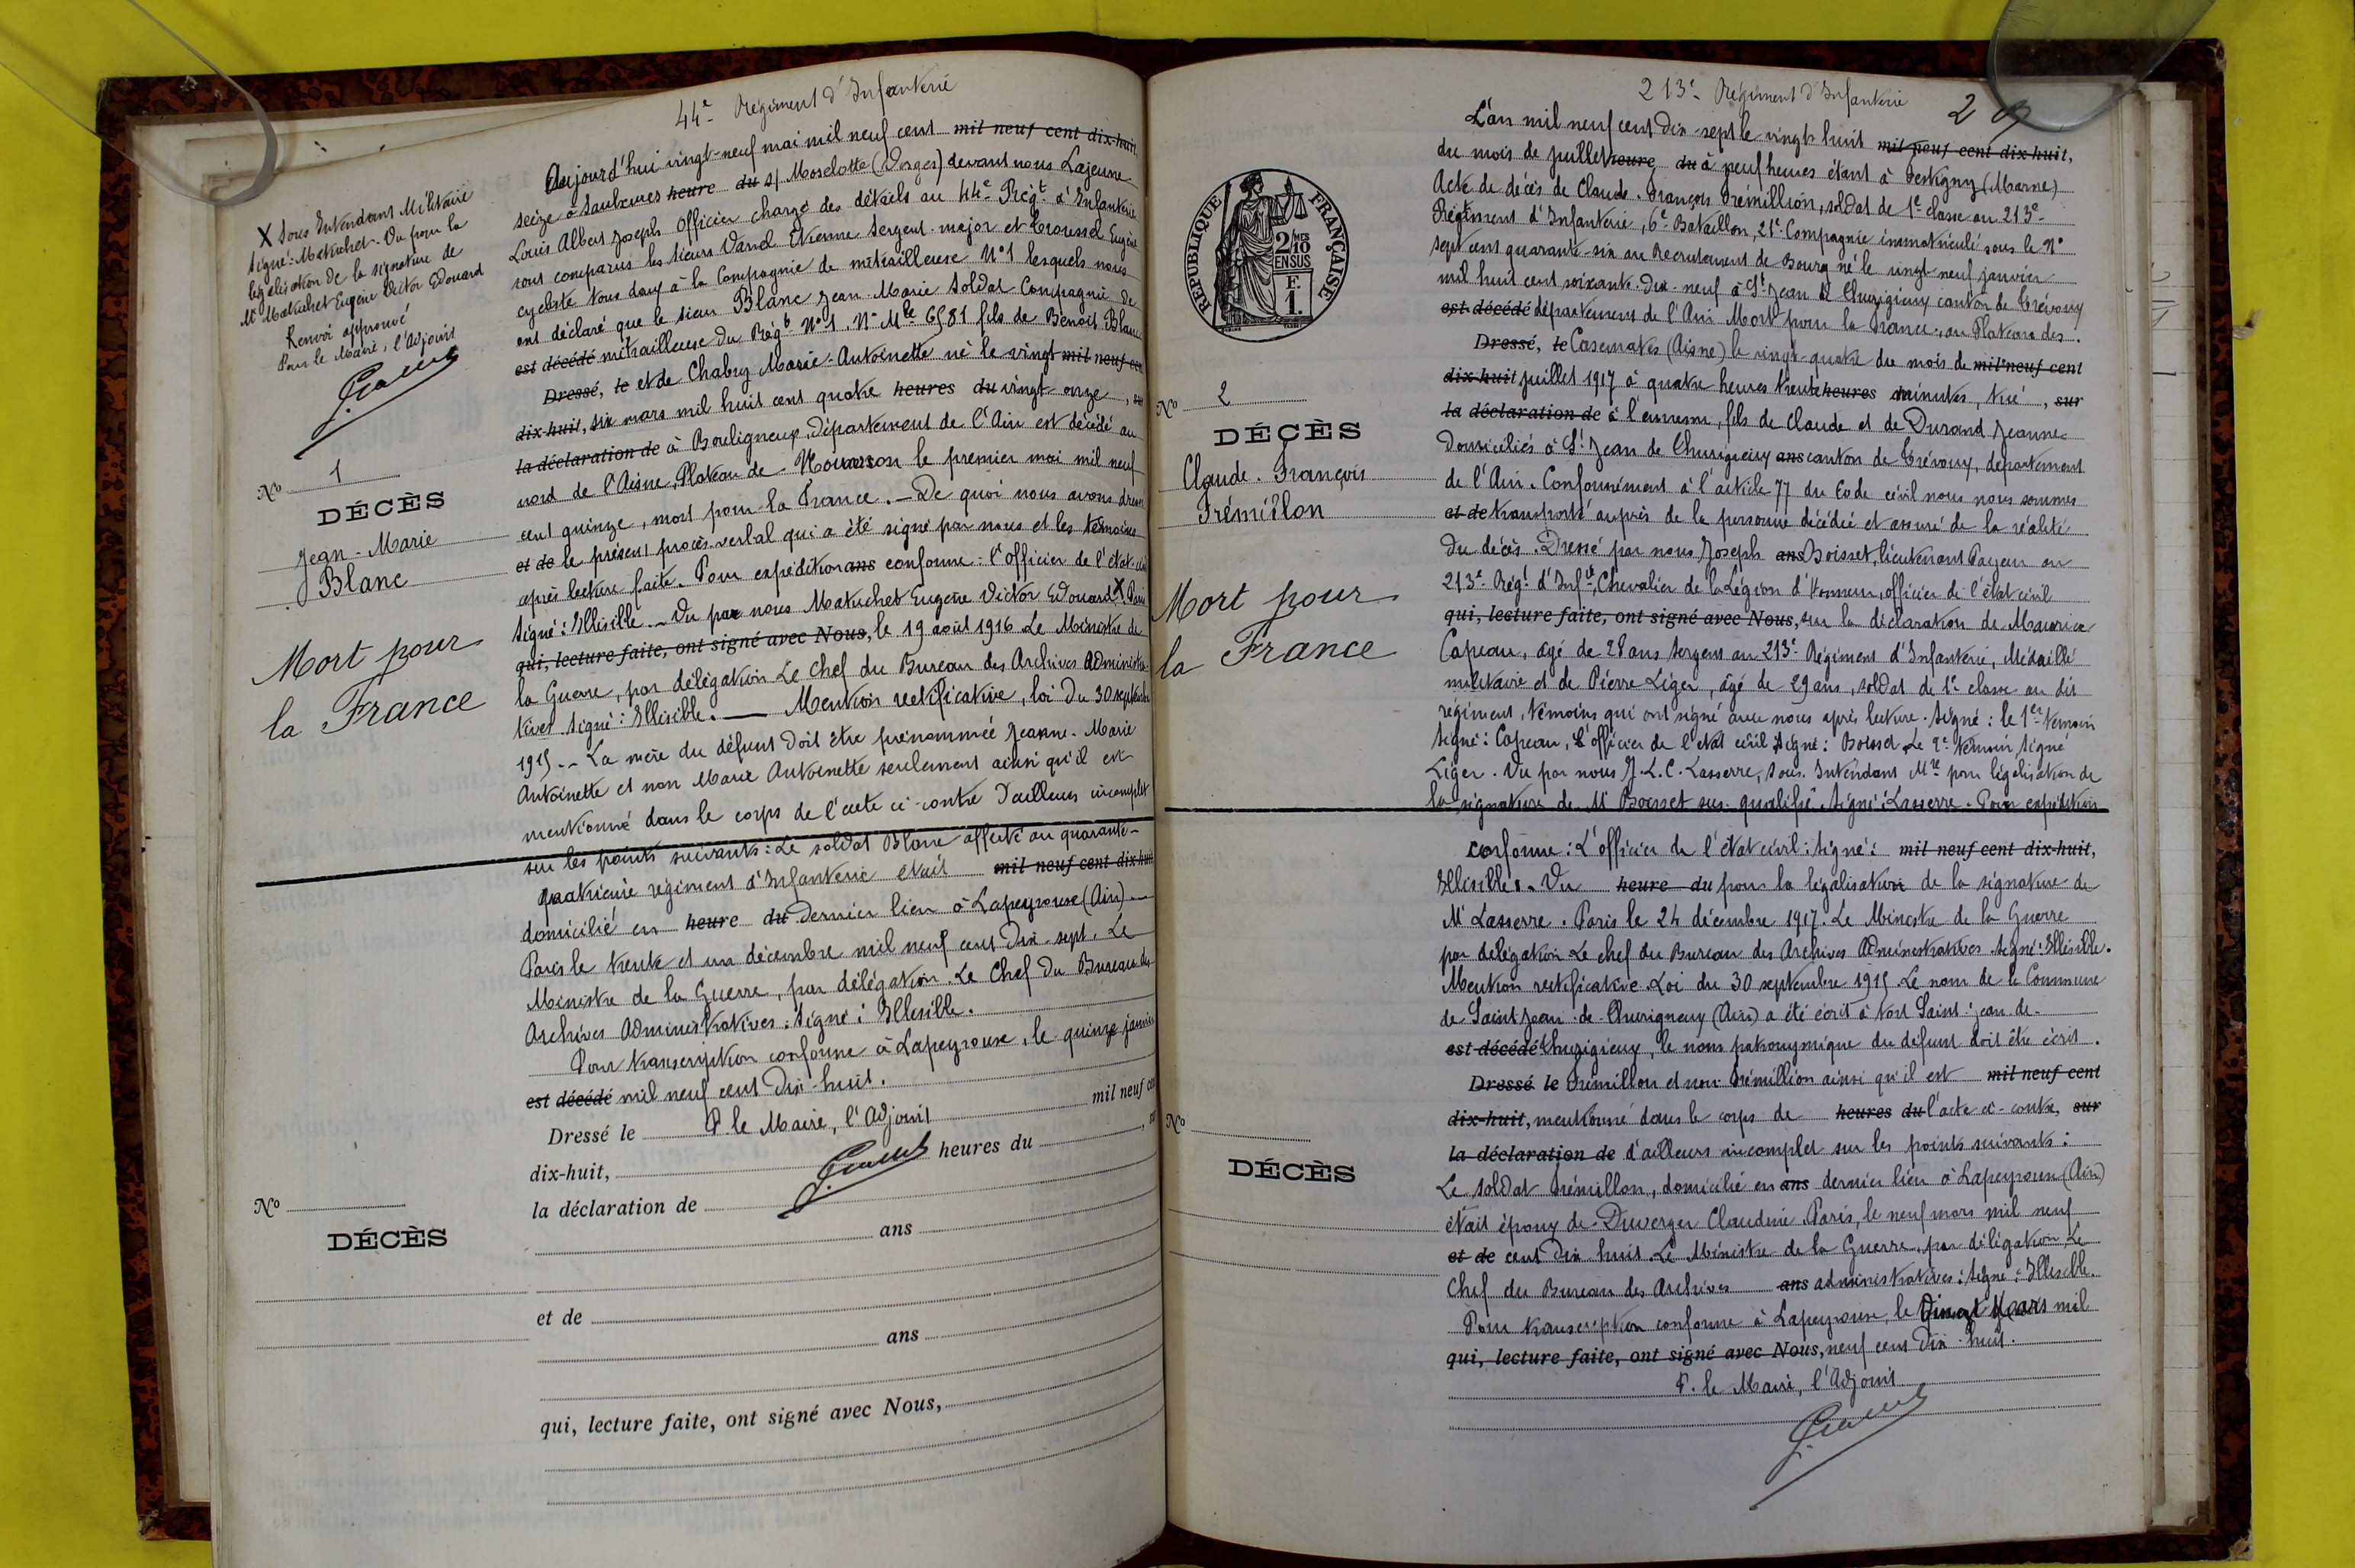 44e Régiment d'Infanterie
Aujourd'hui vingt-neuf mai mil neuf cent mil neuf cent dix-huit,
seize à Saulxures heure du s/ Moselotte (Vosges) devant nous Lajeune
Louis Albert Joseph Officier chargé des détails au 44e Régt d'Infanterie
sont comparus les sieurs Vanel Etienne Sergent-major et Troussel Eugène
cycliste tous deux à la Compagnie de mitrailleuse N°1 lesquels nous
ont déclaré que le sieur Blanc Jean-Marie Soldat Compagnie de
est décédé mitrailleuse du Régt N°1. N° Mle 6581 fils de Benoit Blanc
Dressé, le et de Chabry Marie-Antoinette né le vingt mil neuf cent
dix-huit, six mars mil huit cent quatre heures du vingt-onze,
la déclaration de à Bouligneux, département de l'Ain est décédé au
nord de l'Aisne, Plateau de Nouvron le premier mai mil neuf
cent quinze, mort pour la France. — De quoi nous avons dressé
et de le présent procès-verbal qui a été signé par nous et les témoins
après lecture faite. Pour expédition ans conforme : l'Officier de l'état-civil
Signé : Illisible. — Vu par nous Matuchet Eugène Victor Edouard X Paris
qui, lecture faite, ont signé avec Nous, le 19 août 1916 Le Ministre de
la Guerre, par délégation Le Chef du Bureau des Archives Administra-
tives signé : Illisible. — Mention rectificative, loi du 30 septembre
1915 -- La mère du défunt doit être prénommée Jeanne-Marie
Antoinette et non Marie Antoinette seulement ainsi qu'il est
mentionné dans le corps de l'acte ci-contre d'ailleurs incomplet
sur les points suivants : Le soldat Blanc affecté au quarante-
quatrième régiment d'Infanterie était mil neuf cent dix-huit
domicilié en heure du dernier lieu à Lapeyrouse (Ain) —
Paris le trente et un décembre mil neuf cent dix-sept. Le
Ministre de la Guerre, par délégation. Le Chef du Bureau des
Archives Administratives : signé : Illisible.
Pour transcription conforme à Lapeyrouse, le quinze janvier
est décédé mil neuf cent dix-huit.
Dressé le P. le Maire, l'Adjoint mil neuf cent
dix-huit, heures du
la déclaration de
ans
et de
ans
qui, lecture faite, ont signé avec Nous,
X Sous Intendant Militaire
signé : Matuchet - Vu pour la
légalisation de la signature de
Mr Matuchet Eugène Victor Edouard
Renvoi approuvé
Pour le Maire, l'Adjoint
No 1
DÉCÈS
Jean-Marie
Blanc
Mort pour
la France
No
DÉCÈS
213e Régiment d'Infanterie
2
L'an mil neuf cent dix-sept le vingt huit mil neuf cent dix-huit,
du mois de juillet heure du à neuf heures étant à Sertigny (Marne)
Acte de décès de Claude-François Trémillion, soldat de 1e classe au 213e
Régiment d'Infanterie, 6e Bataillon, 21e Compagnie immatriculé sous le N°
sept cent quarante-six au Recrutement de Bourg né le vingt-neuf janvier
mil huit cent soixante-dix-neuf à St Jean de Chuzigieux canton de Trévoux
est décédé département de l'Ain. Mort pour la France, au Plateau des
Dressé, le Casemates (Aisne) le vingt-quatre du mois de mil neuf cent
dix-huit juillet 1917 à quatre heures trente heures minutes, tué, sur
la déclaration de à l'ennemi, fils de Claude et de Durand Jeanne
domiciliés à St Jean de Churigieux ans canton de Trévoux, département
de l'Ain. Conformément à l'article 77 du Code civil nous nous sommes
et de transporté auprès de la personne décédée et assuré de la réalité
du décès. Dressé par nous Joseph ans Boisset, lieutenant Payeur au
213e Régt d'Infie, Chevalier de la Légion d'Honneur, officier de l'état civil
qui, lecture faite, ont signé avec Nous, sur la déclaration de Maurice
Capeau, âgé de 28 ans sergent au 213e Régiment d'Infanterie, Médaillé
militaire et de Pierre Liger, âgé de 29 ans, soldat de 1e classe au dit
régiment, témoins qui ont signé avec nous après lecture. Signé : le 1er témoin
signé : Capeau, L'officier de l'état civil signé : Boisset Le 2e témoin signé
Liger. Vu par nous J. L. C. Lasserre, Sous-Intendant Mre pour légalisation de
la signature de Mr Boisset sus-qualifié. Signé : Lasserre. Pour expédition
conforme : L'officier de l'état civil : signé : mil neuf cent dix-huit,
Illisible. Vu heure du pour la légalisation de la signature de
Mr Lasserre. Paris le 24 décembre 1917. Le Ministre de la Guerre
par délégation Le chef du Bureau des Archives Administratives signé : Illisible.
Mention rectificative. Loi du 30 septembre 1915 Le nom de la Commune
de Saint-Jean-de-Thurigneux (Ain) a été écrit à tort Saint-Jean de
est décédé Chuzigieux, le nom patronymique du défunt doit être écrit
Dressé le Trémillon et non Trémillion ainsi qu'il est mil neuf cent
dix-huit, mentionné dans le corps de heures du l'acte ci-contre, sur
la déclaration de d'ailleurs incomplet sur les points suivants :
Le soldat Trémillon, domicilié en ans dernier lieu à Lapeyrouse (Ain)
était époux de Duverger Claudine. Paris, le neuf mars mil neuf
et de cent dix huit. Le Ministre de la Guerre, par délégation, Le
Chef du Bureau des Archives ans administratives : signé : Illisible.
Pour transcription conforme à Lapeyrouse, le Vingt Mars mil
qui, lecture faite, ont signé avec Nous, neuf cent dix-huit.
P. le Maire, l'Adjoint
RÉPUBLIQUE FRANÇAISE
2/10 MES
EN SUS
F.
1.
No 2
DÉCÈS
Claude-François
Trémillon
Mort pour
la France
No
DÉCÈS